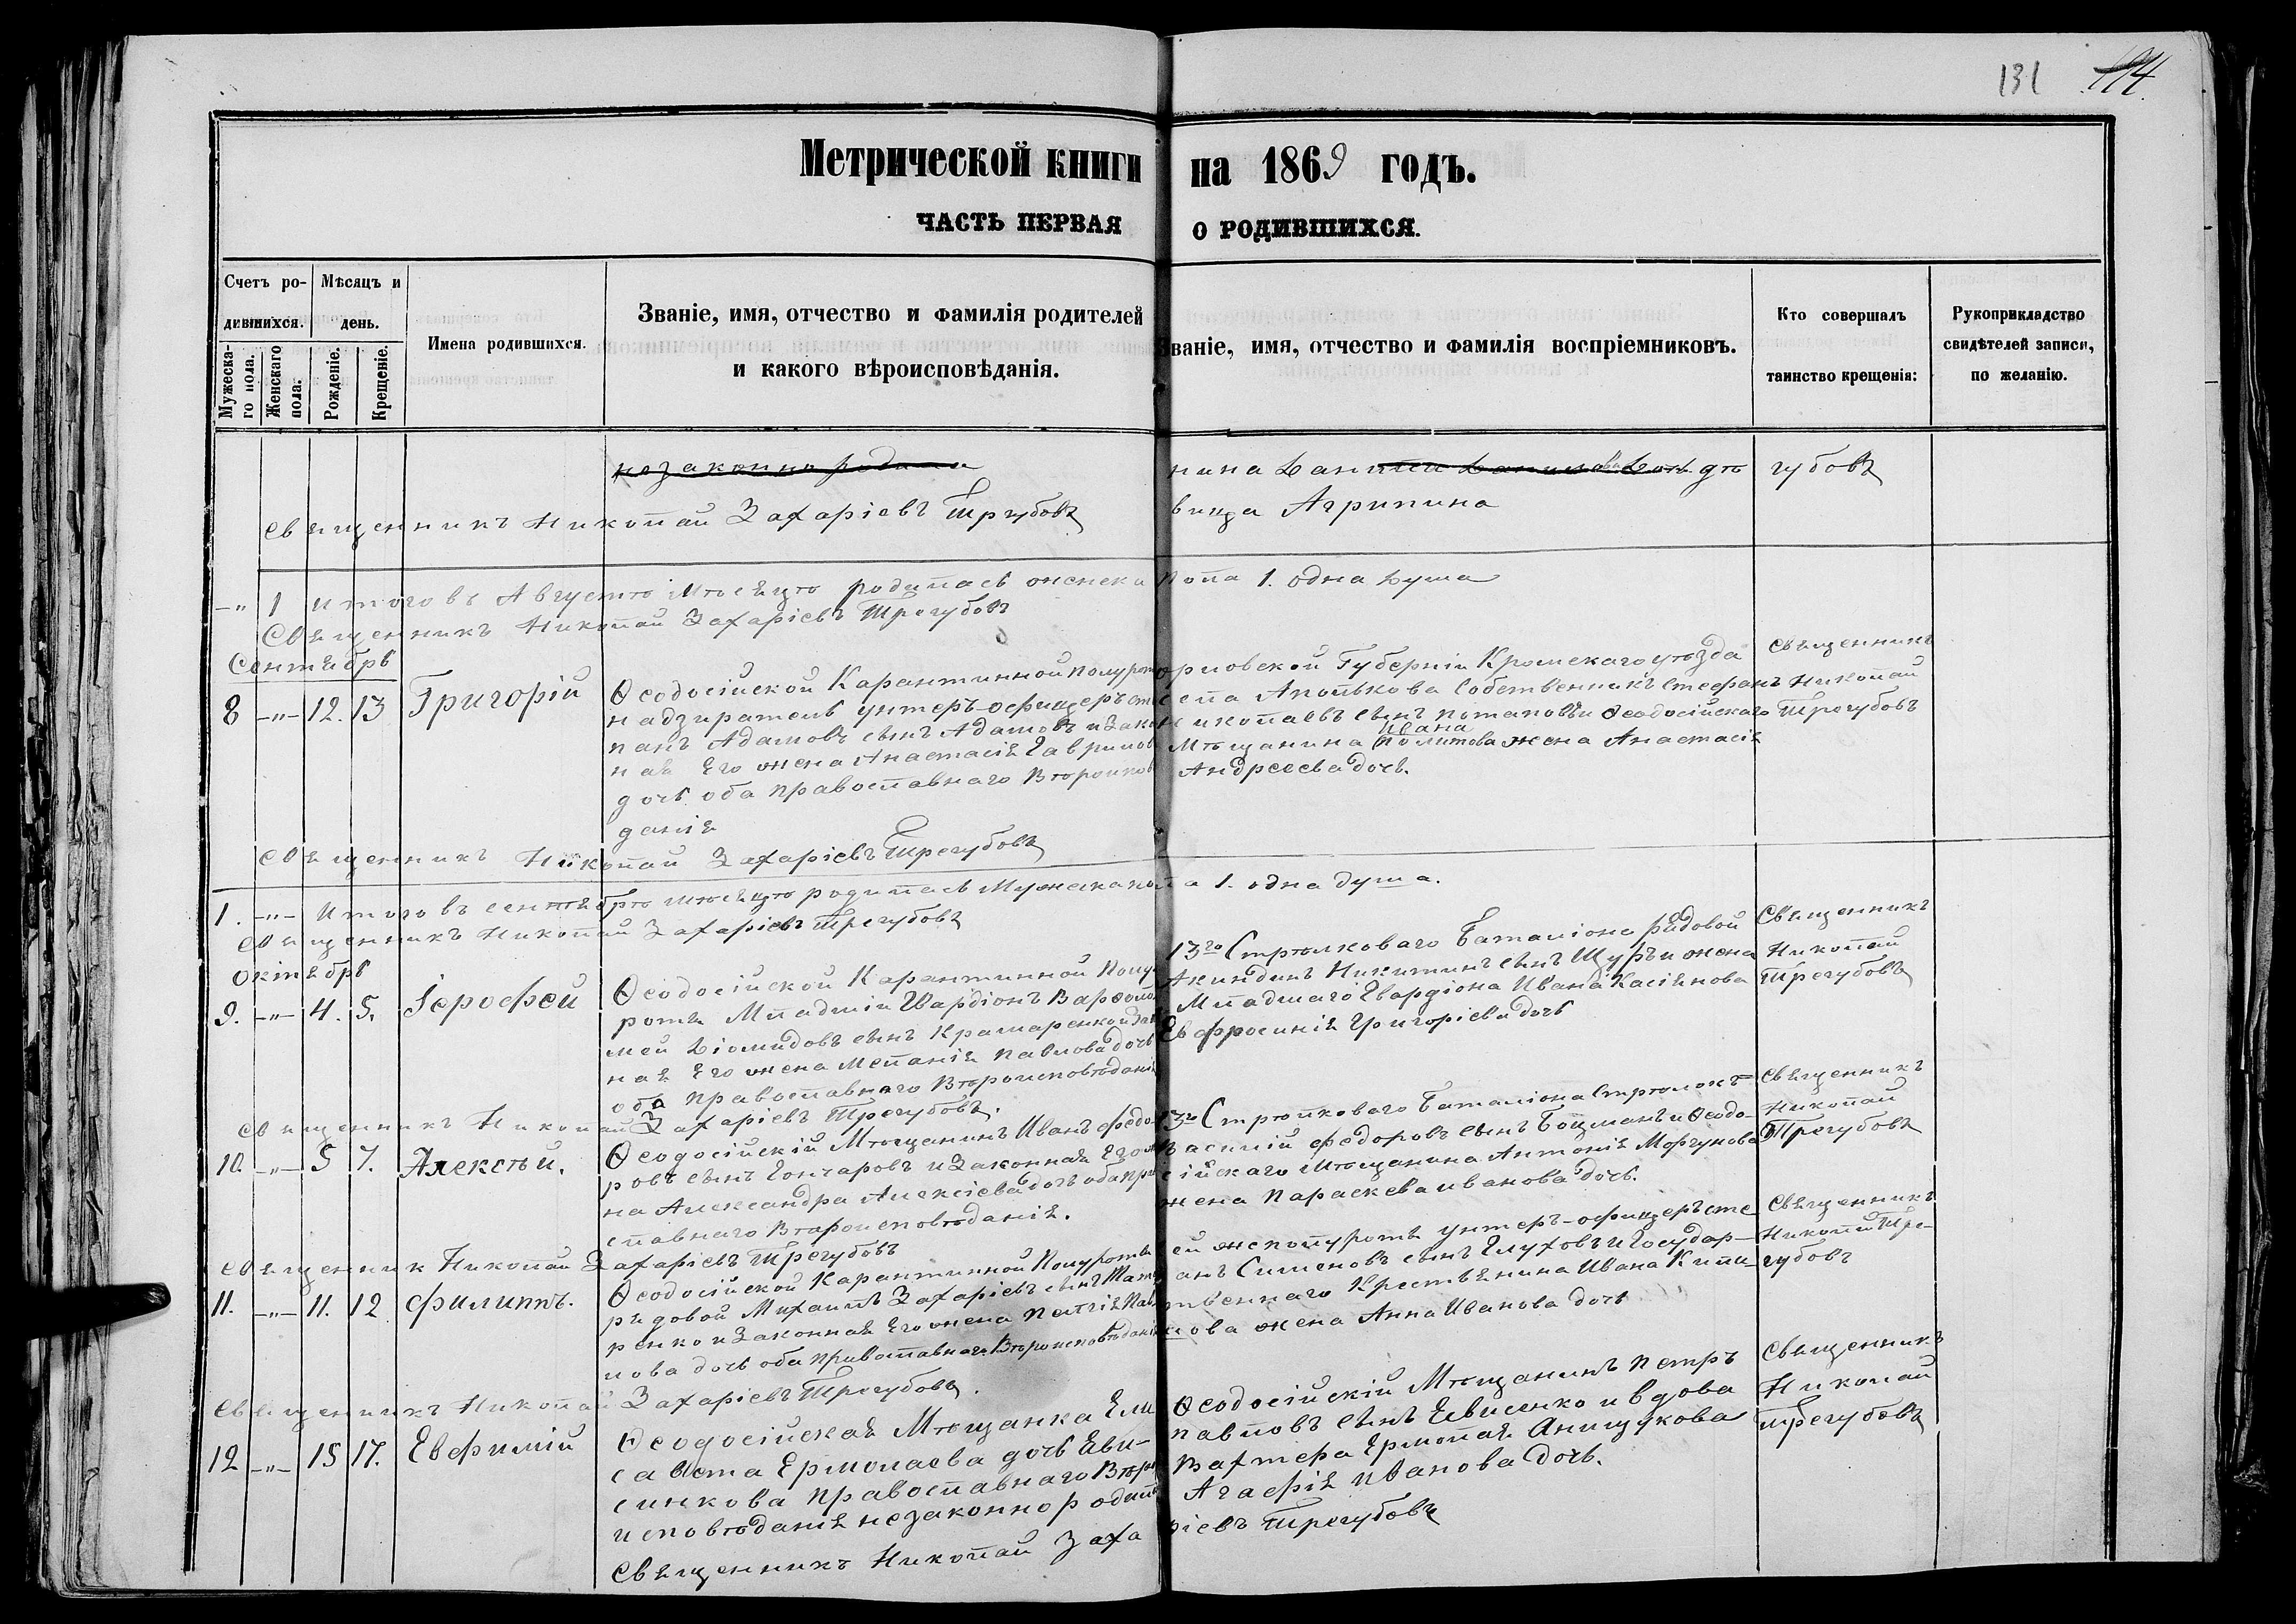 131 114.
Метрической книги на 1869 годъ.
ЧАСТЬ ПЕРВАЯ О РОДИВШИХСЯ.
Счетъ родившихся.
Мужескаго пола.
Женскаго пола.
Мѣсяцъ и день.
Рожденіе.
Крещеніе.
Имена родившихся.
Званіе, имя, отчество и фамилія родителей
и какого вѣроисповѣданія.
Званіе, имя, отчество и фамилія воспріемниковъ.
Кто совершалъ
таинство крещенія:
Рукоприкладство
свидѣтелей записи,
по желанію.
незаконно
нина дѣ
вица Агрипина
губовъ
Священникъ Николай Захаріевъ Трегубовъ
-"- 1 Итого въ Августѣ мѣсяцѣ родилась женска пола 1. одна душа
Священникъ Николай Захаріевъ Трегубовъ
Сентябрь
8 -"- 12. 13 Григорій
Ѳеодосійской Карантинной полурот
надзиратель унтеръ-офицеръ
Адамовъ сынъ Адамовъ и зако
ная его жена Анастасія Гаврилов
дочь оба православнаго Вѣроиспов
данія
орловской Губерніи Кромскаго уѣзда
села Апалькова Собственникъ Стефанъ
Николаевъ сынъ Потаповъ и Ѳеодосійскаго
Мѣщанина Ивана жена Анастасія
Андреева дочь.
Священникъ
Николай
Трегубовъ
Священникъ Николай Захаріевъ Трегубовъ
1. -"- Итого въ сентябрѣ мѣсяцѣ родилась Мужска пола 1. одна душа.
Священникъ Николай Захаріевъ Трегубовъ
Октябрь
9. -"- 4. 5. Іерофей
Ѳеодосійской Карантинной Полу
роты Младшій Гвардіонъ Варѳоло
мей Діомидовъ сынъ Крамаренко и Зак
ная Его жена Меланія Павлова дочь
оба православнаго Вѣроисповѣданія
13го Стрѣлковаго Баталіона рядовой
Акиндинъ Никитинъ сынъ Щуръ и жена
Младшаго Гвардіона Ивана Касіянова
Евфросинія Григоріева дочь
Священникъ
Николай
Трегубовъ
Священникъ Николай Захаріевъ Трегубовъ.
10. -"- 5 7. Алексѣй.
Ѳеодосійскій Мѣщанинъ Иванъ Ѳедо
ровъ сынъ Гончаровъ и Законная Его же
на Александра Алексіева дочь оба пра
славнаго Вѣроисповѣданія.
13го Стрѣлковаго Баталіона Стрѣлокъ
Василій Федоровъ сынъ Боцманъ и Ѳеодо-
сійскаго Мѣщанина Антонія Моргунова
жена Параскева Иванова дочь.
Священникъ
Николай
Трегубовъ
Священник Николай Захаріевъ Трегубовъ
11. -"- 11. 12 Филиппъ.
Ѳеодосійской Карантинной Полуроты
рядовой Михаилъ Захаріевъ сынъ
ренко и Законная Его жена Пелагія Пав
лова дочь оба православнаго Вѣроисповѣданія
ей же полуроты унтеръ-офицеръ Сте
анъ Сименовъ сынъ Глуховъ и Государ-
твеннаго Крестьянина Ивана
ова жена Анна Иванова дочь
Священникъ
Николай Тре-
губовъ
Священникъ Николай Захаріевъ Трегубовъ.
12 -"- 15 17. Евфимій
Ѳеодосійская Мѣщанка Ели
савета Ермолаева дочь Еви-
сикова православнаго Вѣро
исповѣданія незаконно родилъ
Ѳеодосійскій Мѣщанинъ Петръ
Павловъ сынъ Евисенко и вдова
Вахтера Ермолая Анищукова
Агафія Иванова дочь.
Священникъ
Николай
Трегубовъ
Священникъ Николай Захаріевъ Трегубовъ